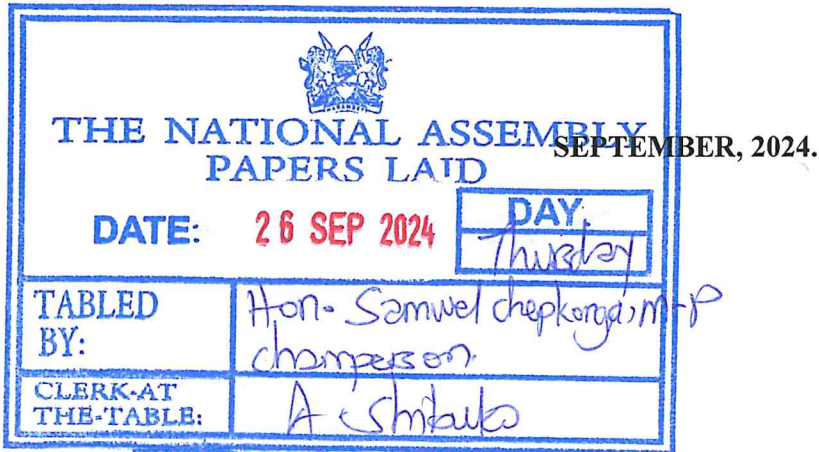 THE NATIONAL ASSEMBLY
SEPTEMBER, 2024.
PAPERS LAID
DATE: 26 SEP 2024
DAY.
Thursday
TABLED BY:
Hon. Samwel Chepkonga, M.P
Chairperson.
CLERK-AT
THE-TABLE:
A Shibuko